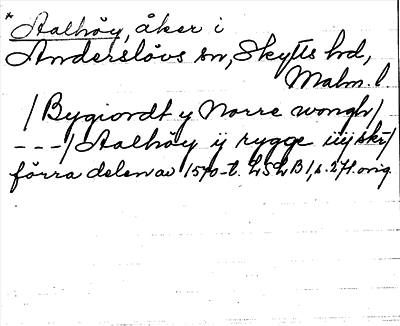 * Aalhöy, åker i
Anderslövs sn, Skytts hd,
Malm. l.
/Bygiordt y Norre wongh/
---/Aalhöy ij rygge iiij skr/
förra delen av 1570-t. LSLB 1, s. 271. orig.